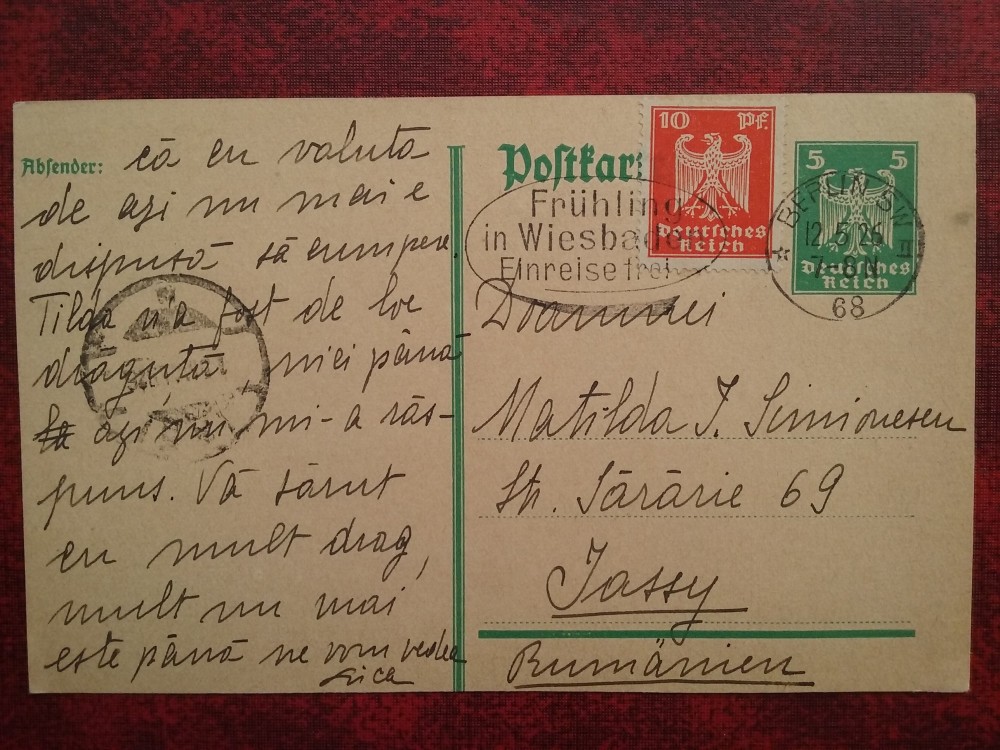 Absender: că cu valuta
de azi nu mai e
dispusă să cumpere.
Tilda n'a fost de loc
drăguță, nici până
azi nu mi-a răs-
puns. Vă sărut
cu mult drag,
mult nu mai
este până ne vom vedea
Postkar
10 Pf.
Deutsches
Reich
5 5
Deutsches
Reich
Frühling
in Wiesbaden
Einreise frei
BERLIN SW
12.5.26
7-8 N
68
Doamnei
Matilda J. Simionescu
Str. Sărărie 69
Jassy
Rumänien